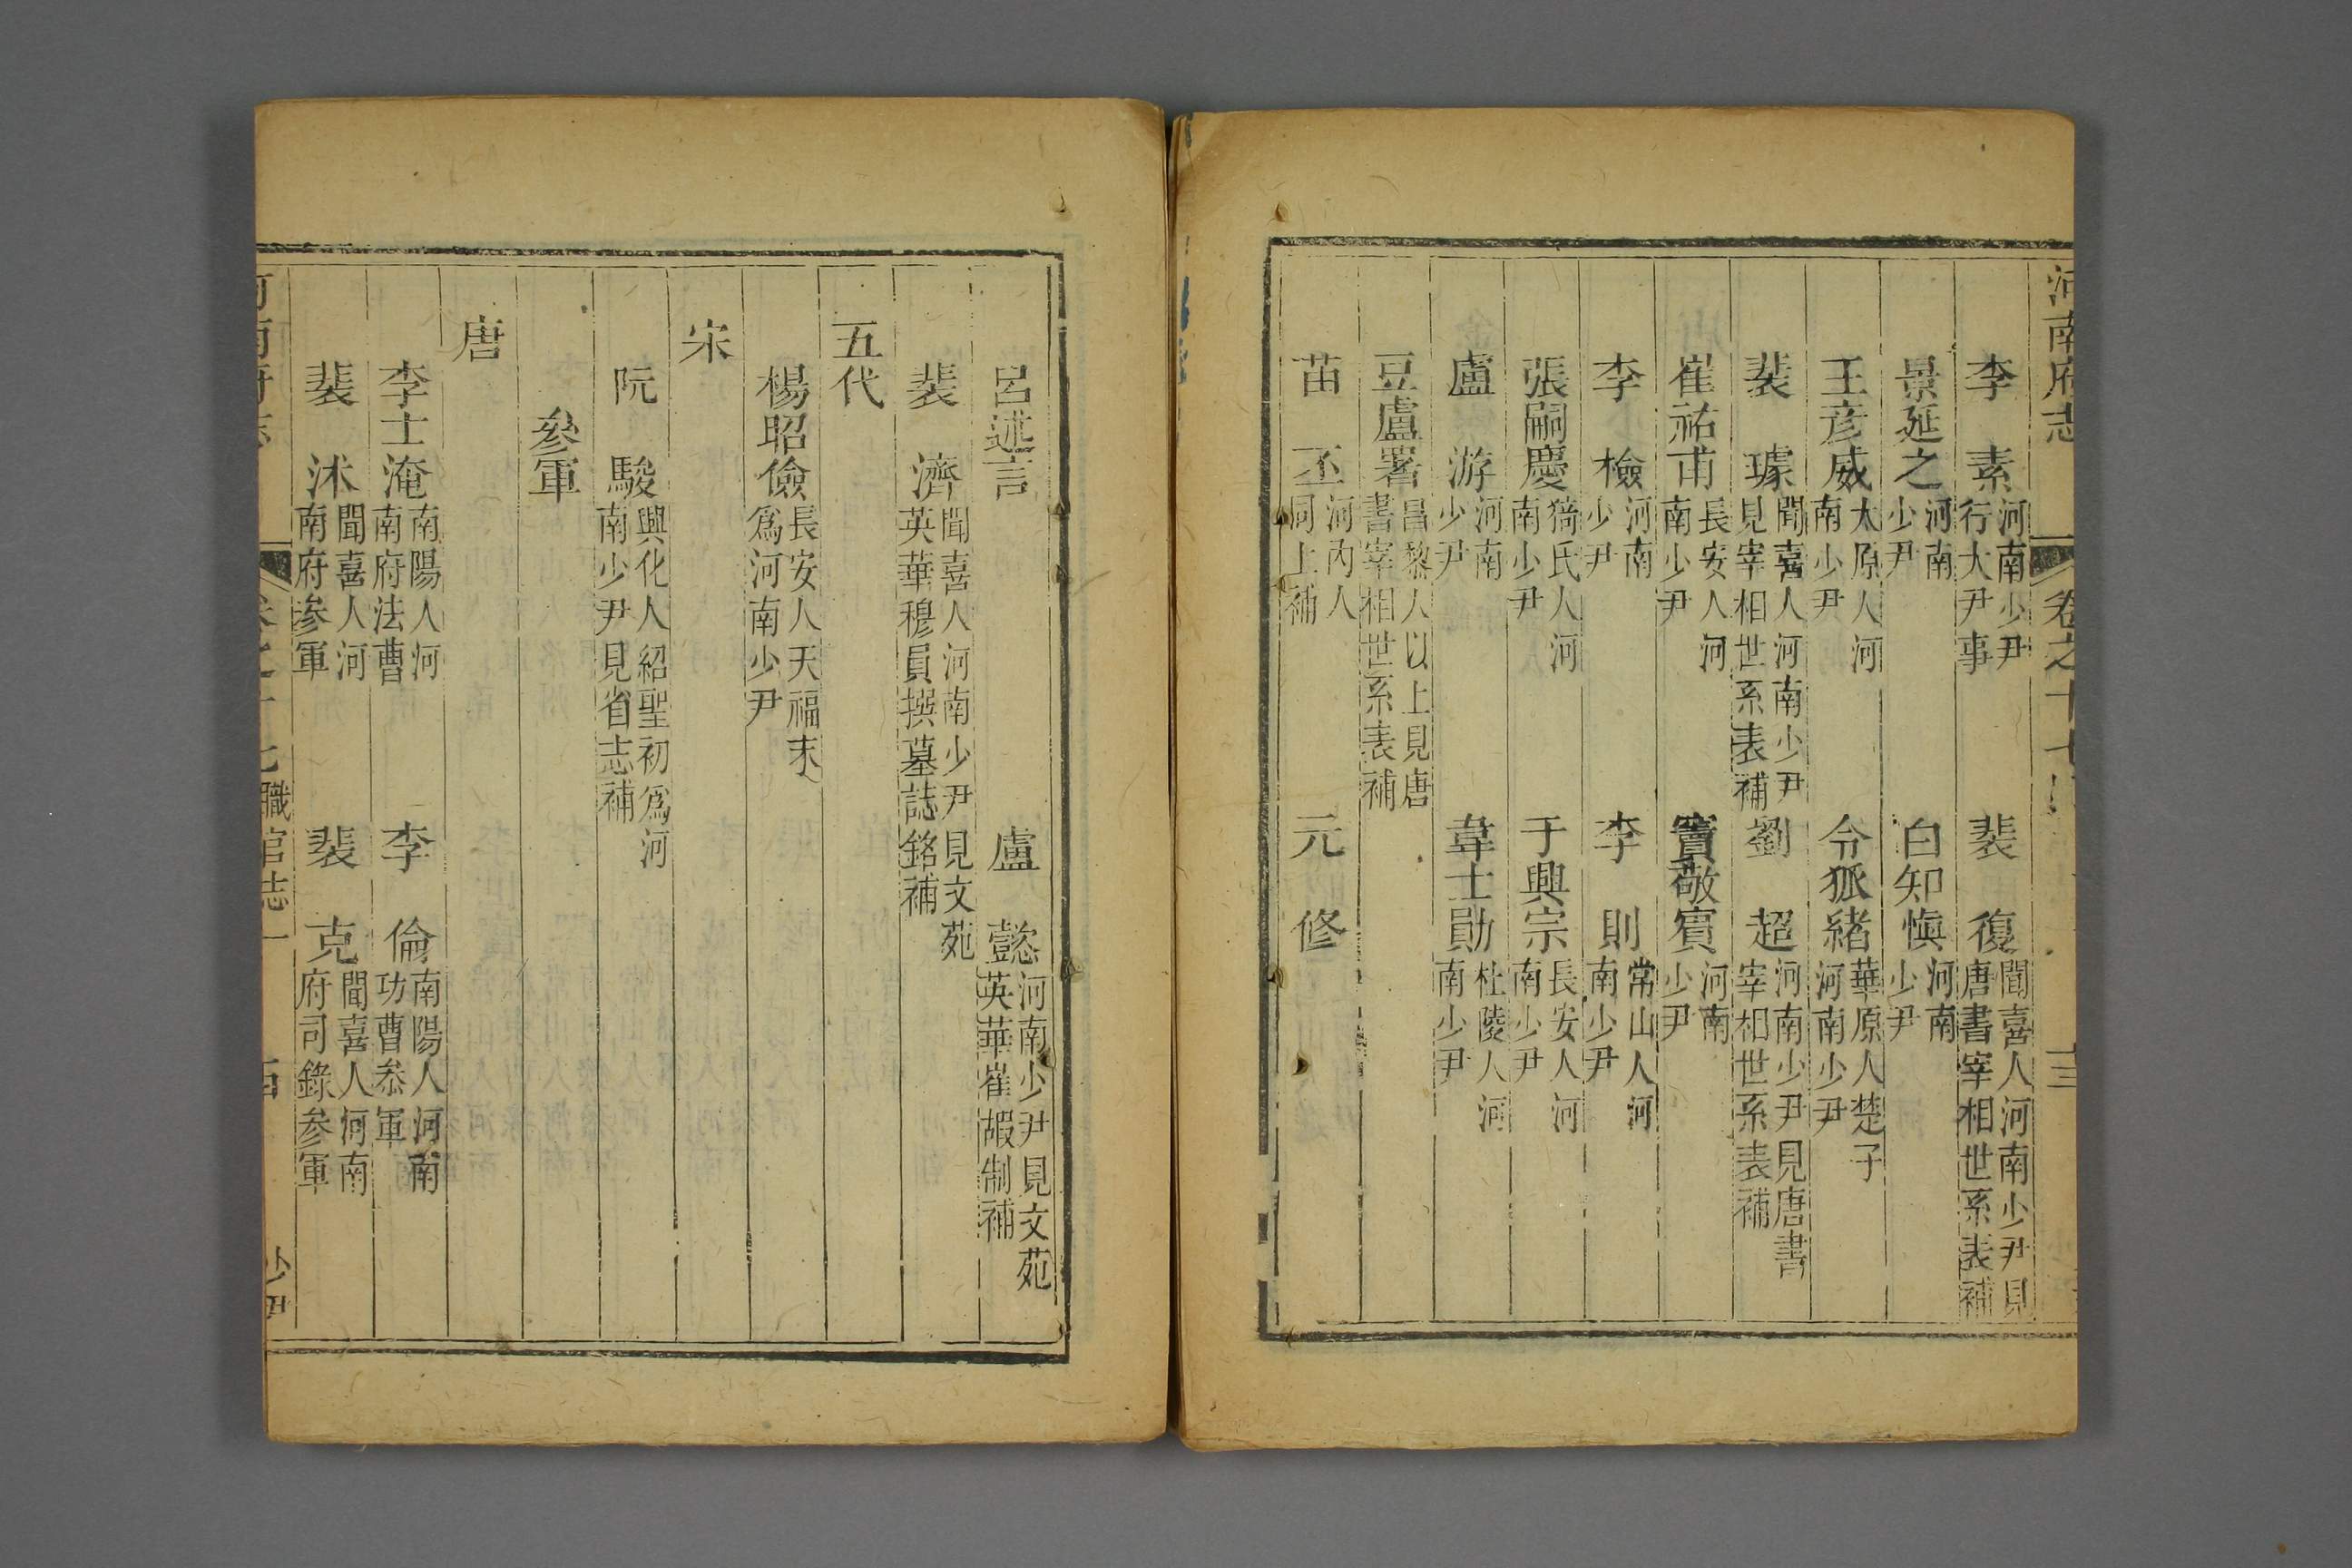 河南府志 卷之十七 十三
李素 河南少尹行大尹事 裴復 聞喜人河南少尹見唐書宰相世系表補
景延之 河南少尹 白知愼 河南少尹
王彦威 太原人河南少尹 令狐緒 華原人楚子河南少尹
裴璩 聞喜人河南少尹見宰相世系表補 劉超 河南少尹見唐書宰相世系表補
崔祐甫 長安人河南少尹 竇敬賓 河南少尹
李檢 河南少尹 李則 常山人河南少尹
張嗣慶 猗氏人河南少尹 于興宗 長安人河南少尹
盧游 河南少尹 韋士勛 杜陵人河南少尹
豆盧署 昌黎人以上見唐書宰相世系表補
苗丕 河內人同上補 元修
呂述言 盧懿 河南少尹見文苑英華崔嘏制補
裴濟 聞喜人河南少尹見文苑英華穆員撰墓誌銘補
五代
楊昭儉 長安人天福末爲河南少尹
宋
阮駿 興化人紹聖初爲河南少尹見省志補
參軍
唐
李士淹 南陽人河南府法曹 李倫 南陽人河南功曹叅軍
裴沭 聞喜人河南府參軍 裴克 聞喜人河南府司錄參軍
河南府志 卷之十七 職官志一 少尹